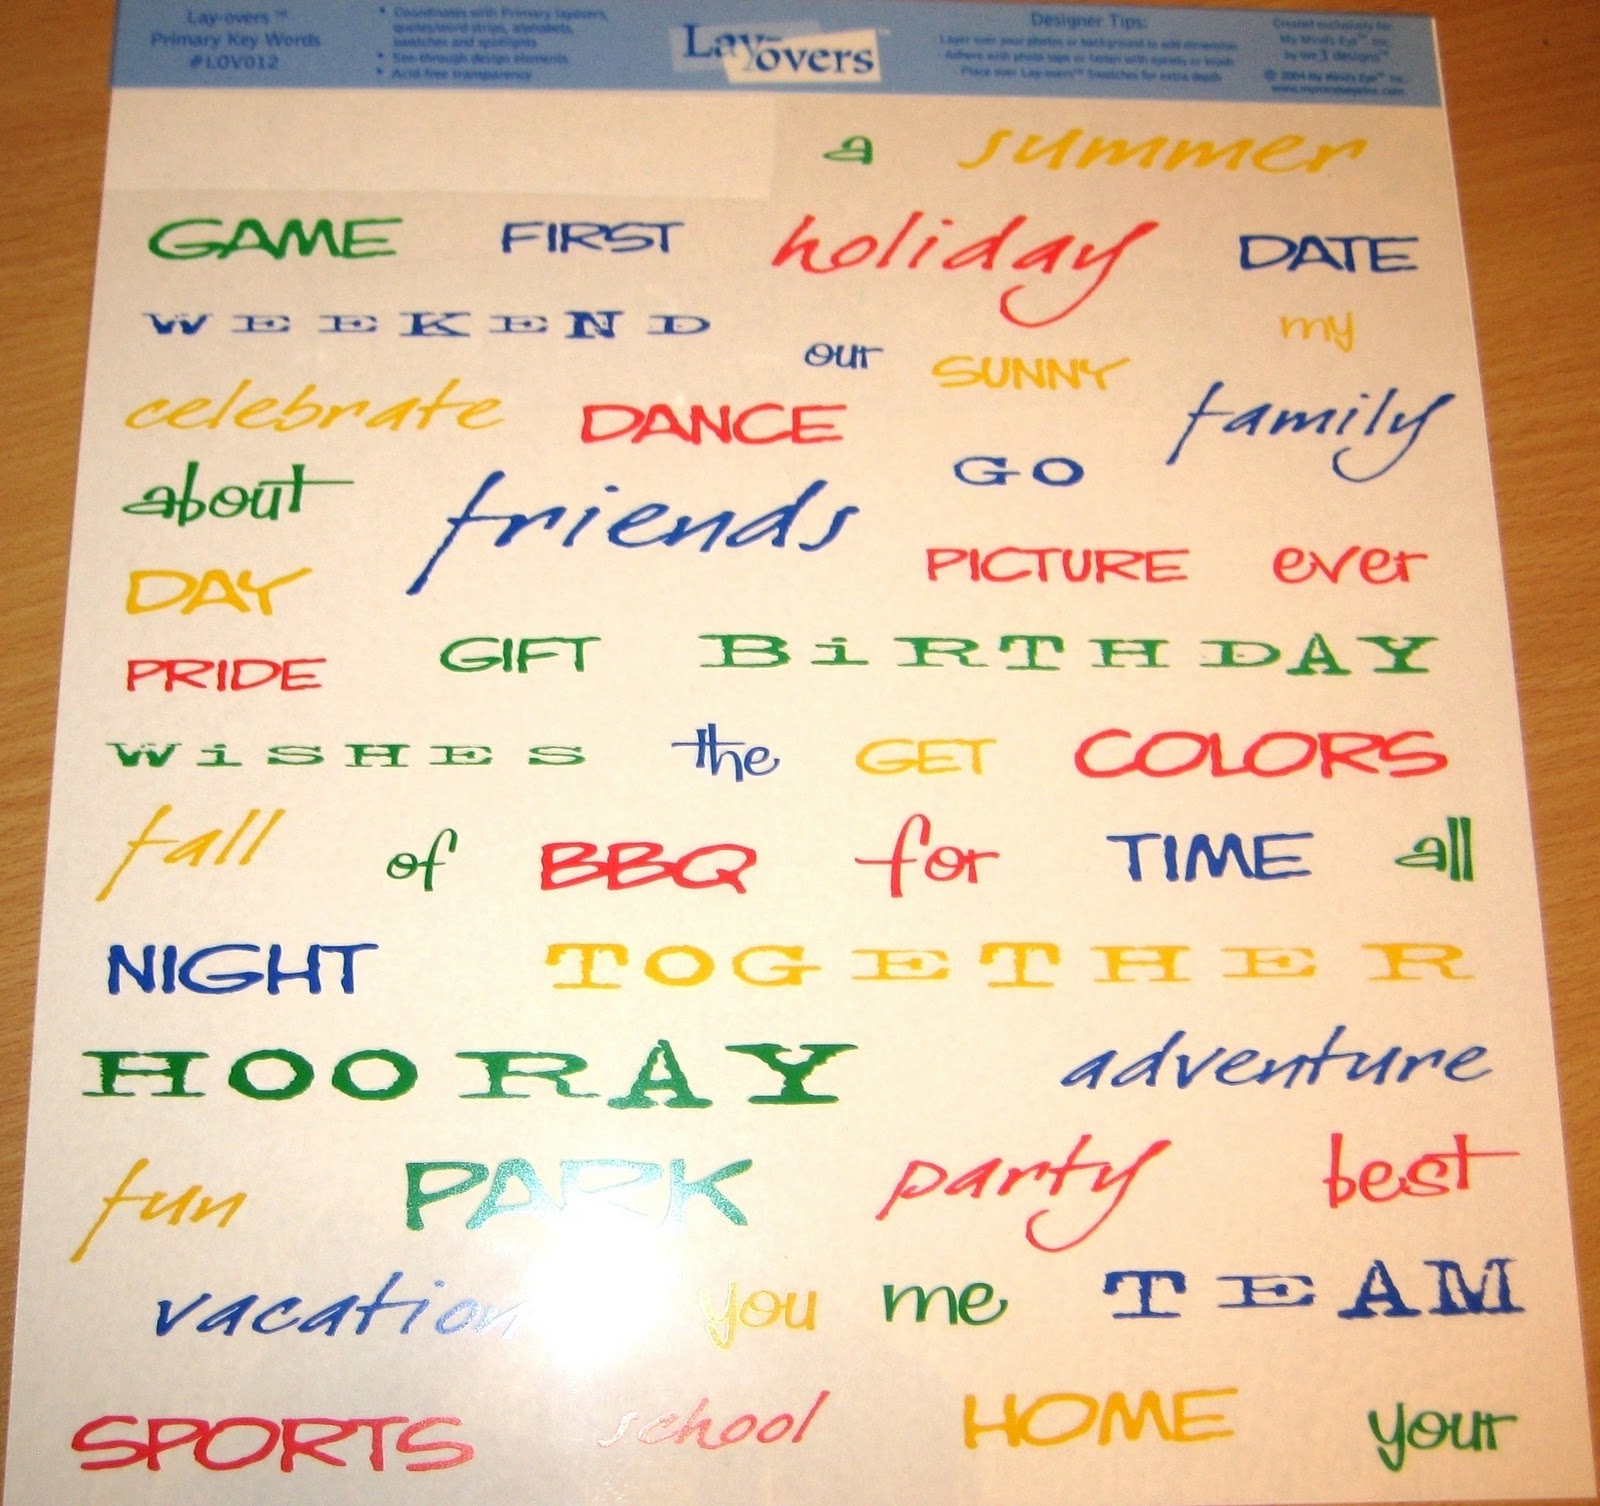 Lay-overs ™
Primary Key Words
#LOV012
• Coordinates with Primary layovers,
quotes/word strips, alphabets,
swatches and spotlights
• See-through design elements
• Acid-free transparency
Lay-overs
Designer Tips:
Layer over your photos or background to add dimension
Adhere with photo tape or fasten with eyelets or brads
Place over Lay-overs™ Swatches for extra depth
Created exclusively for
My Mind's Eye™ Inc.
by we 3 designs™
© 2004 My Mind's Eye™ Inc.
a summer
GAME FIRST holiday DATE
WEEKEND our SUNNY my
celebrate DANCE family
about friends GO
DAY PICTURE ever
PRIDE GIFT BiRTHDAY
WiSHES the GET COLORS
fall of BBQ for TIME all
NIGHT TOGETHER
HOORAY adventure
fun PARK party best
vacation you me TEAM
SPORTS school HOME your